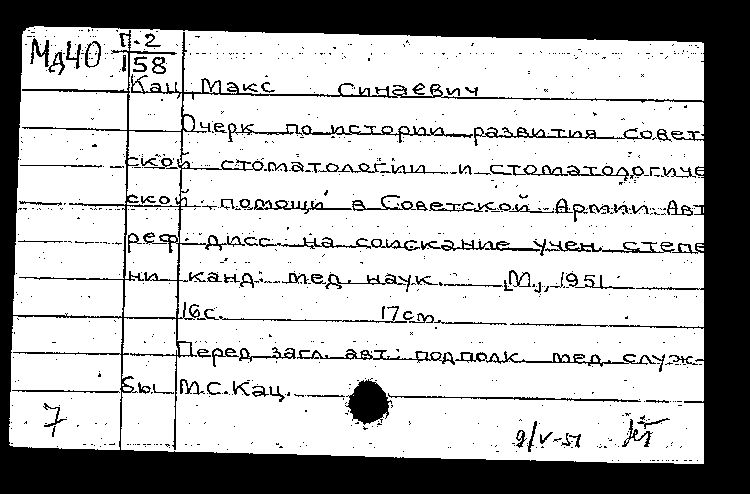 Мд40 П.2
158
Кац, Макс Синаевич
Очерк по истории развития совет-
ской стоматологии и стоматологиче
ской помощи в Советской Армии Авт
реф. дисс. на соискание учен. степе
ни канд. мед. наук. [М.], 1951.
16с. 17см.
Перед загл. авт.: подполк. мед. служ-
бы М.С.Кац.
7
9/V-51